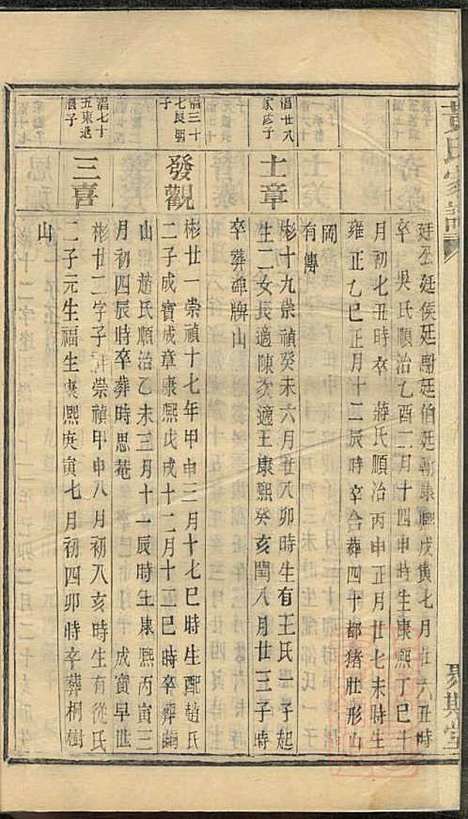 黃氏家譜
廷丞廷侯廷謝廷伯廷勷康熙戊寅七月廿六丑時
卒 吳氏順治乙酉二月十四申時生康熙丁巳十
月初七丑時卒 蔣氏順治丙申正月廿七未時生
雍正乙巳正月十二辰時卒合葬四十都猪肚形山
岡
有傳
倡廿八
家彥子
士章
彬十九崇禎癸未六月廿八卯時生有王氏一子起
生二女長適陳次適王康熙癸亥閏八月廿三子時
卒葬碑牌山
倡三十
七良明
子
發觀
彬廿一崇禎十七年甲申三月十七巳時生配趙氏
二子成寶成章康熙戊戌十二月十一巳時卒葬
山 趙氏順治乙未三月十一辰時生康熙丙寅三
月初四辰時卒葬時思菴 成寶早世
倡七十
五東退
長子
三喜
彬廿二字子 崇禎甲申八月初八亥時生有從氏
二子元生福生康熙庚寅七月初四卯時卒葬桐樹
山
聚斯堂